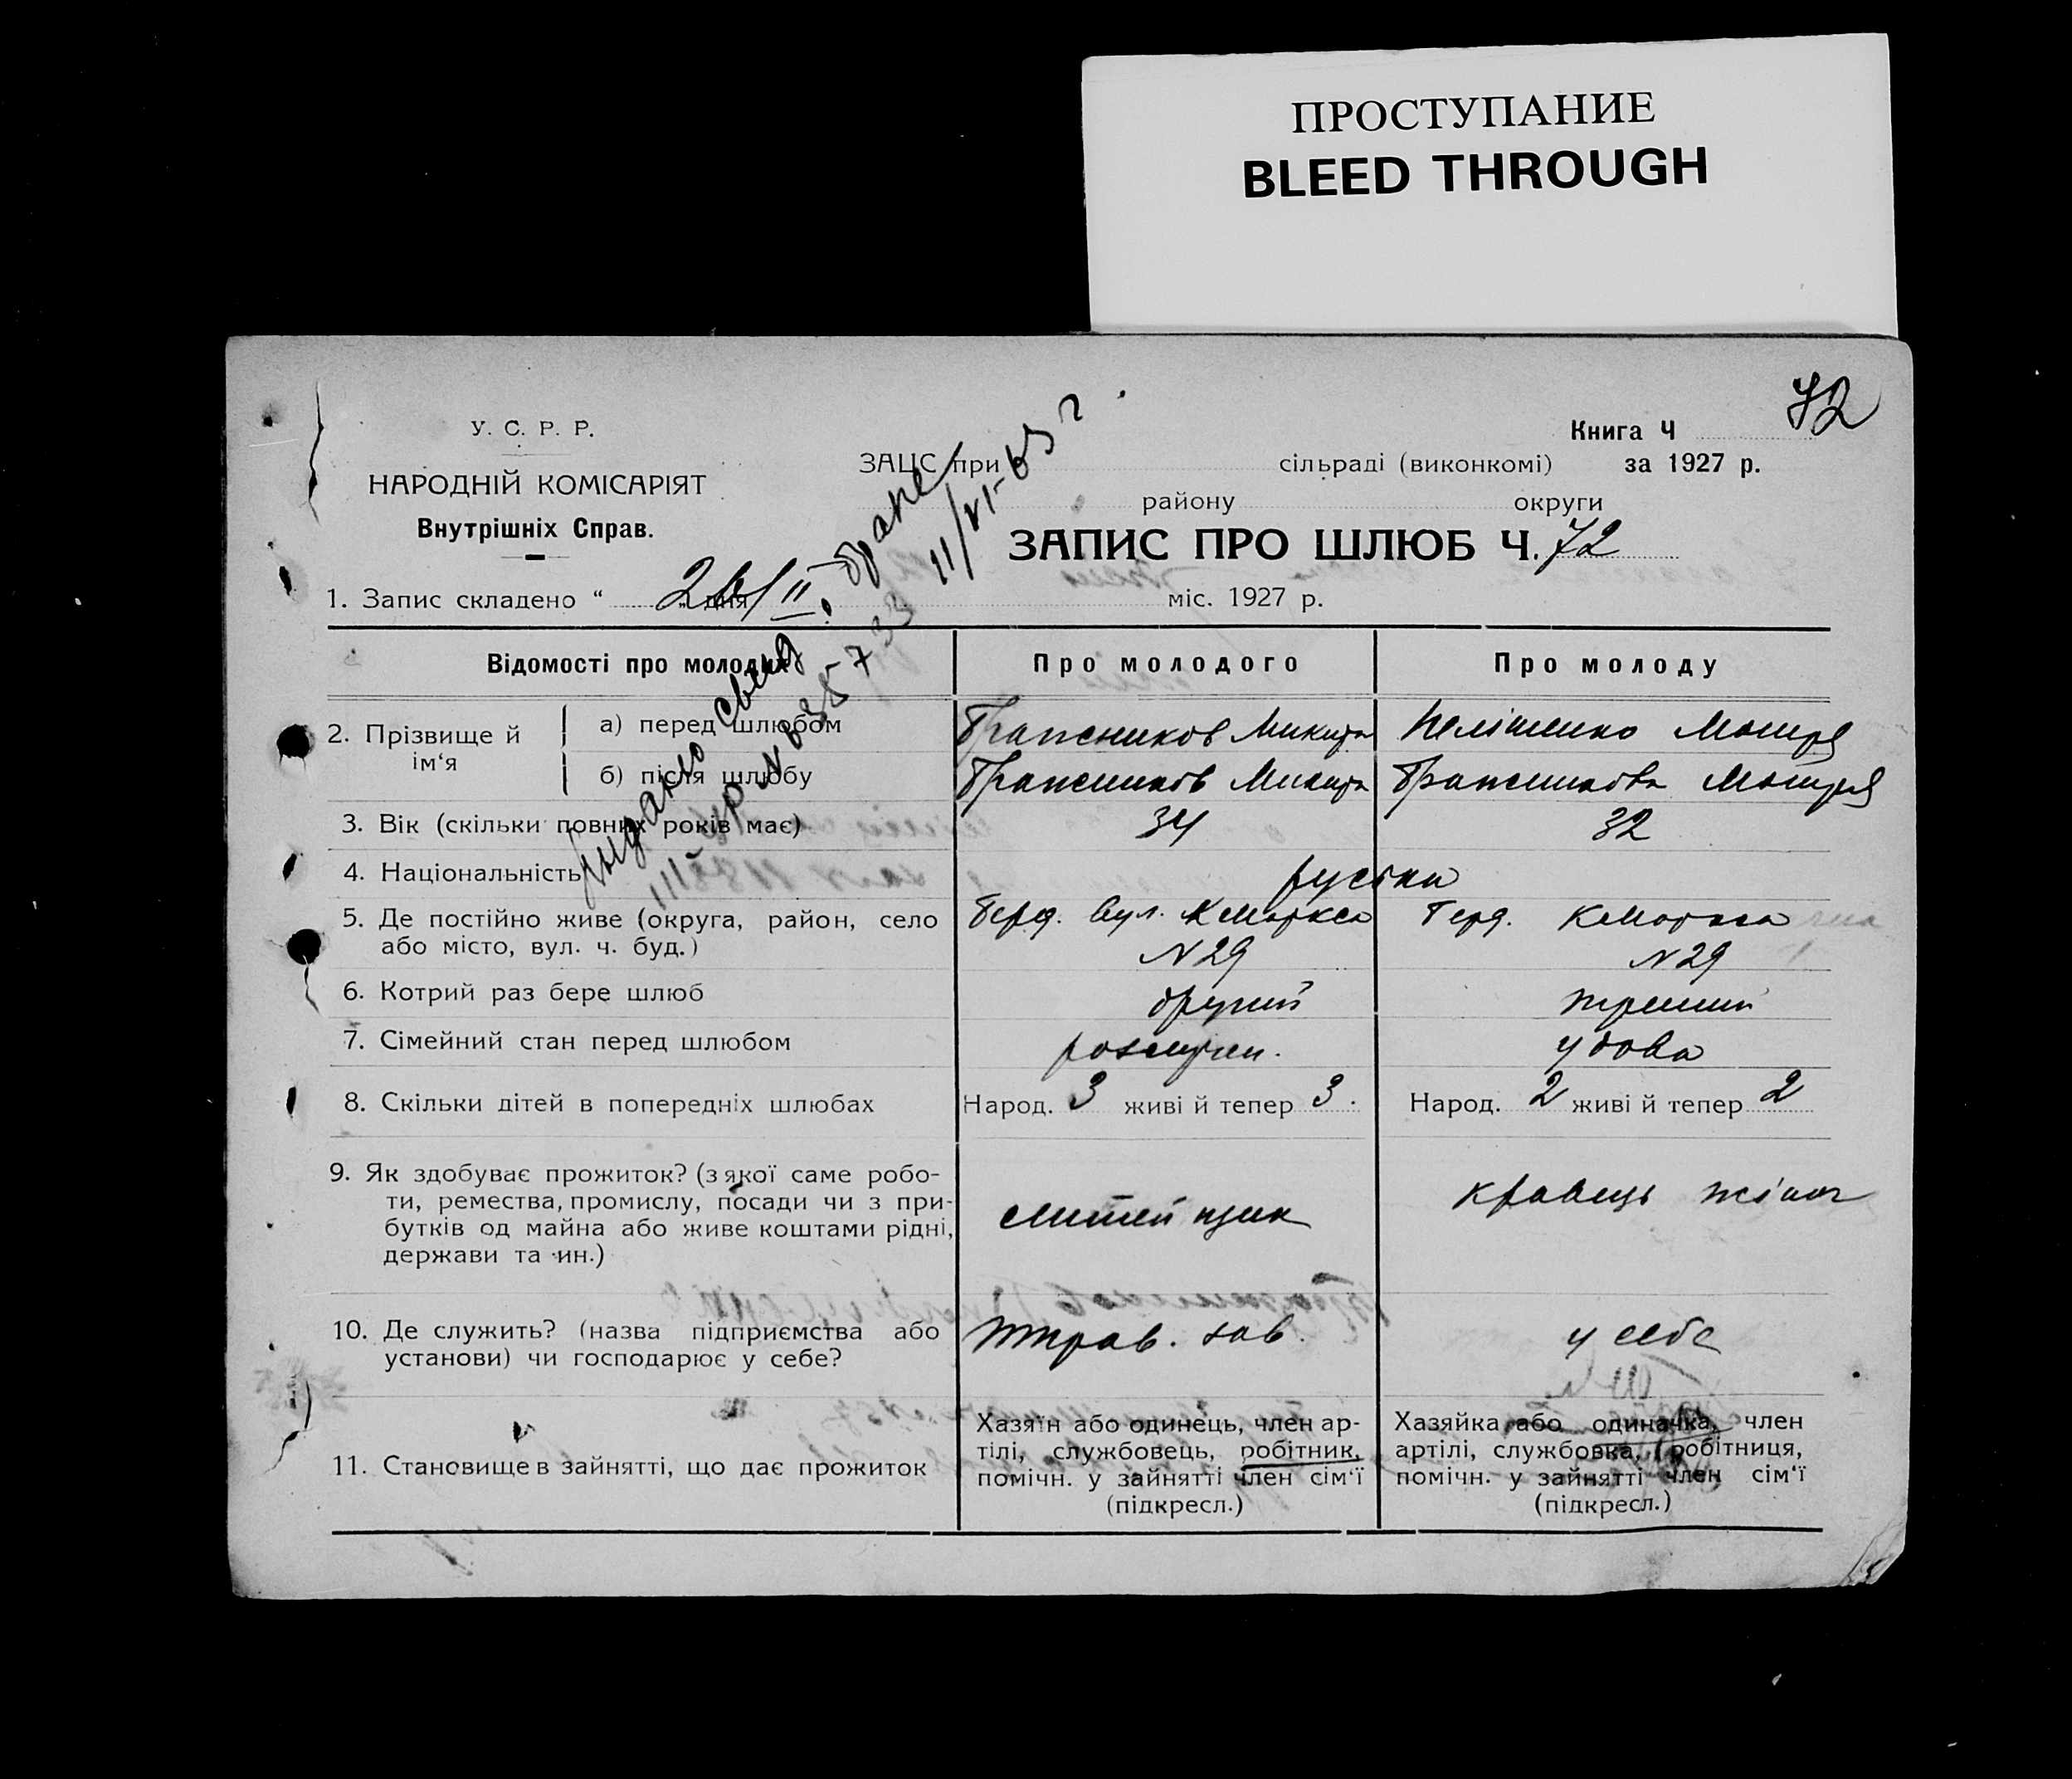 ПРОСТУПАНИЕ
BLEED THROUGH
72
У. С. Р. Р.
НАРОДНІЙ КОМІСАРІЯТ
Внутрішніх Справ.
Книга Ч
ЗАЦС при сільраді (виконкомі) за 1927 р.
району округи
ЗАПИС ПРО ШЛЮБ Ч. 72
1. Запис складено “ дня міс. 1927 р.
Відомості про молодих
Про молодого
Про молоду
2. Прізвище й ім‘я
а) перед шлюбом
Бражников Микита
Мотря
б) після шлюбу
Бражников Микита
Бражникова Мотря
3. Вік (скільки повних років має)
34
32
4. Національність
руські
5. Де постійно живе (округа, район, село
або місто, вул. ч. буд.)
Берд. вул. К Маркса
N 29
Берд. К Маркса
N 29
6. Котрий раз бере шлюб
другий
третий
7. Сімейний стан перед шлюбом
удова
8. Скільки дітей в попередніх шлюбах
Народ. 3 живі й тепер 3.
Народ. 2 живі й тепер 2
9. Як здобуває прожиток? (з якої саме робо-
ти, ремества, промислу, посади чи з при-
бутків од майна або живе коштами рідні,
держави та ин.)
литейщик
кравець жіноч
10. Де служить? (назва підприємства або
установи) чи господарює у себе?
зав.
у себе
11. Становище в зайнятті, що дає прожиток
Хазяїн або одинець, член ар-
тілі, службовець, робітник,
помічн. у зайнятті член сім‘ї
(підкресл.)
Хазяйка або одиначка, член
артілі, службовка, робітниця,
помічн. у зайнятті член сім‘ї
(підкресл.)